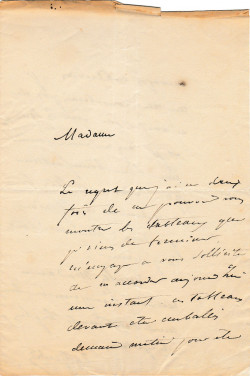 Madame
Le regret que j'ai eu deux
fois de ne pouvoir vous
montrer les tableaux que
je viens de terminer
m'engage a vous solliciter
de m'accorder aujourd'hui
un instant ces tableaux
devant etre emballés
demain matin pour etre